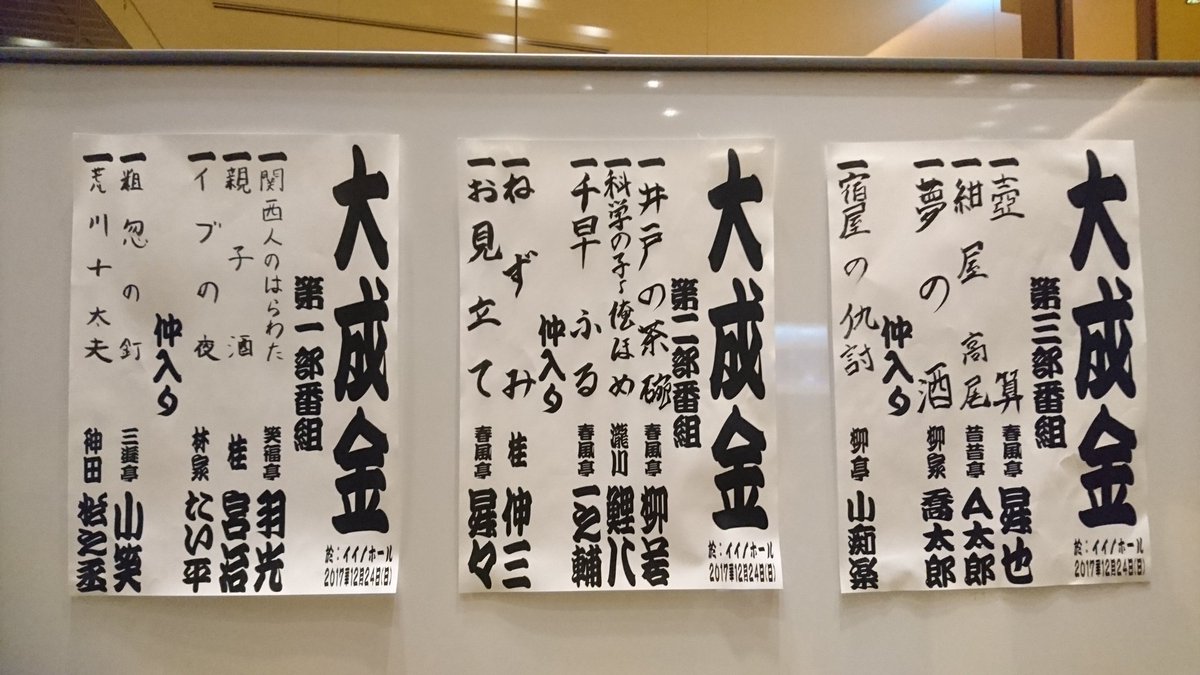 大成金
於：イイノホール
2017年12月24日(日)
第一部番組
一 関西人のはらわた 笑福亭 羽光
一 親子酒 桂 宮治
一 イブの夜 林家 たい平
仲入り
一 粗忽の釘 三遊亭 小笑
一 荒川十太夫 神田 松之丞
大成金
於：イイノホール
2017年12月24日(日)
第二部番組
一 井戸の茶碗 春風亭 柳若
一 科学の子～俺ほめ 瀧川 鯉八
一 千早ふる 春風亭 一之輔
仲入り
一 ねずみ 桂 伸三
一 お見立て 春風亭 昇々
大成金
於：イイノホール
2017年12月24日(日)
第三部番組
一 壺算 春風亭 昇也
一 紺屋高尾 昔昔亭 A太郎
一 夢の酒 柳家 喬太郎
仲入り
一 宿屋の仇討 柳亭 小痴楽